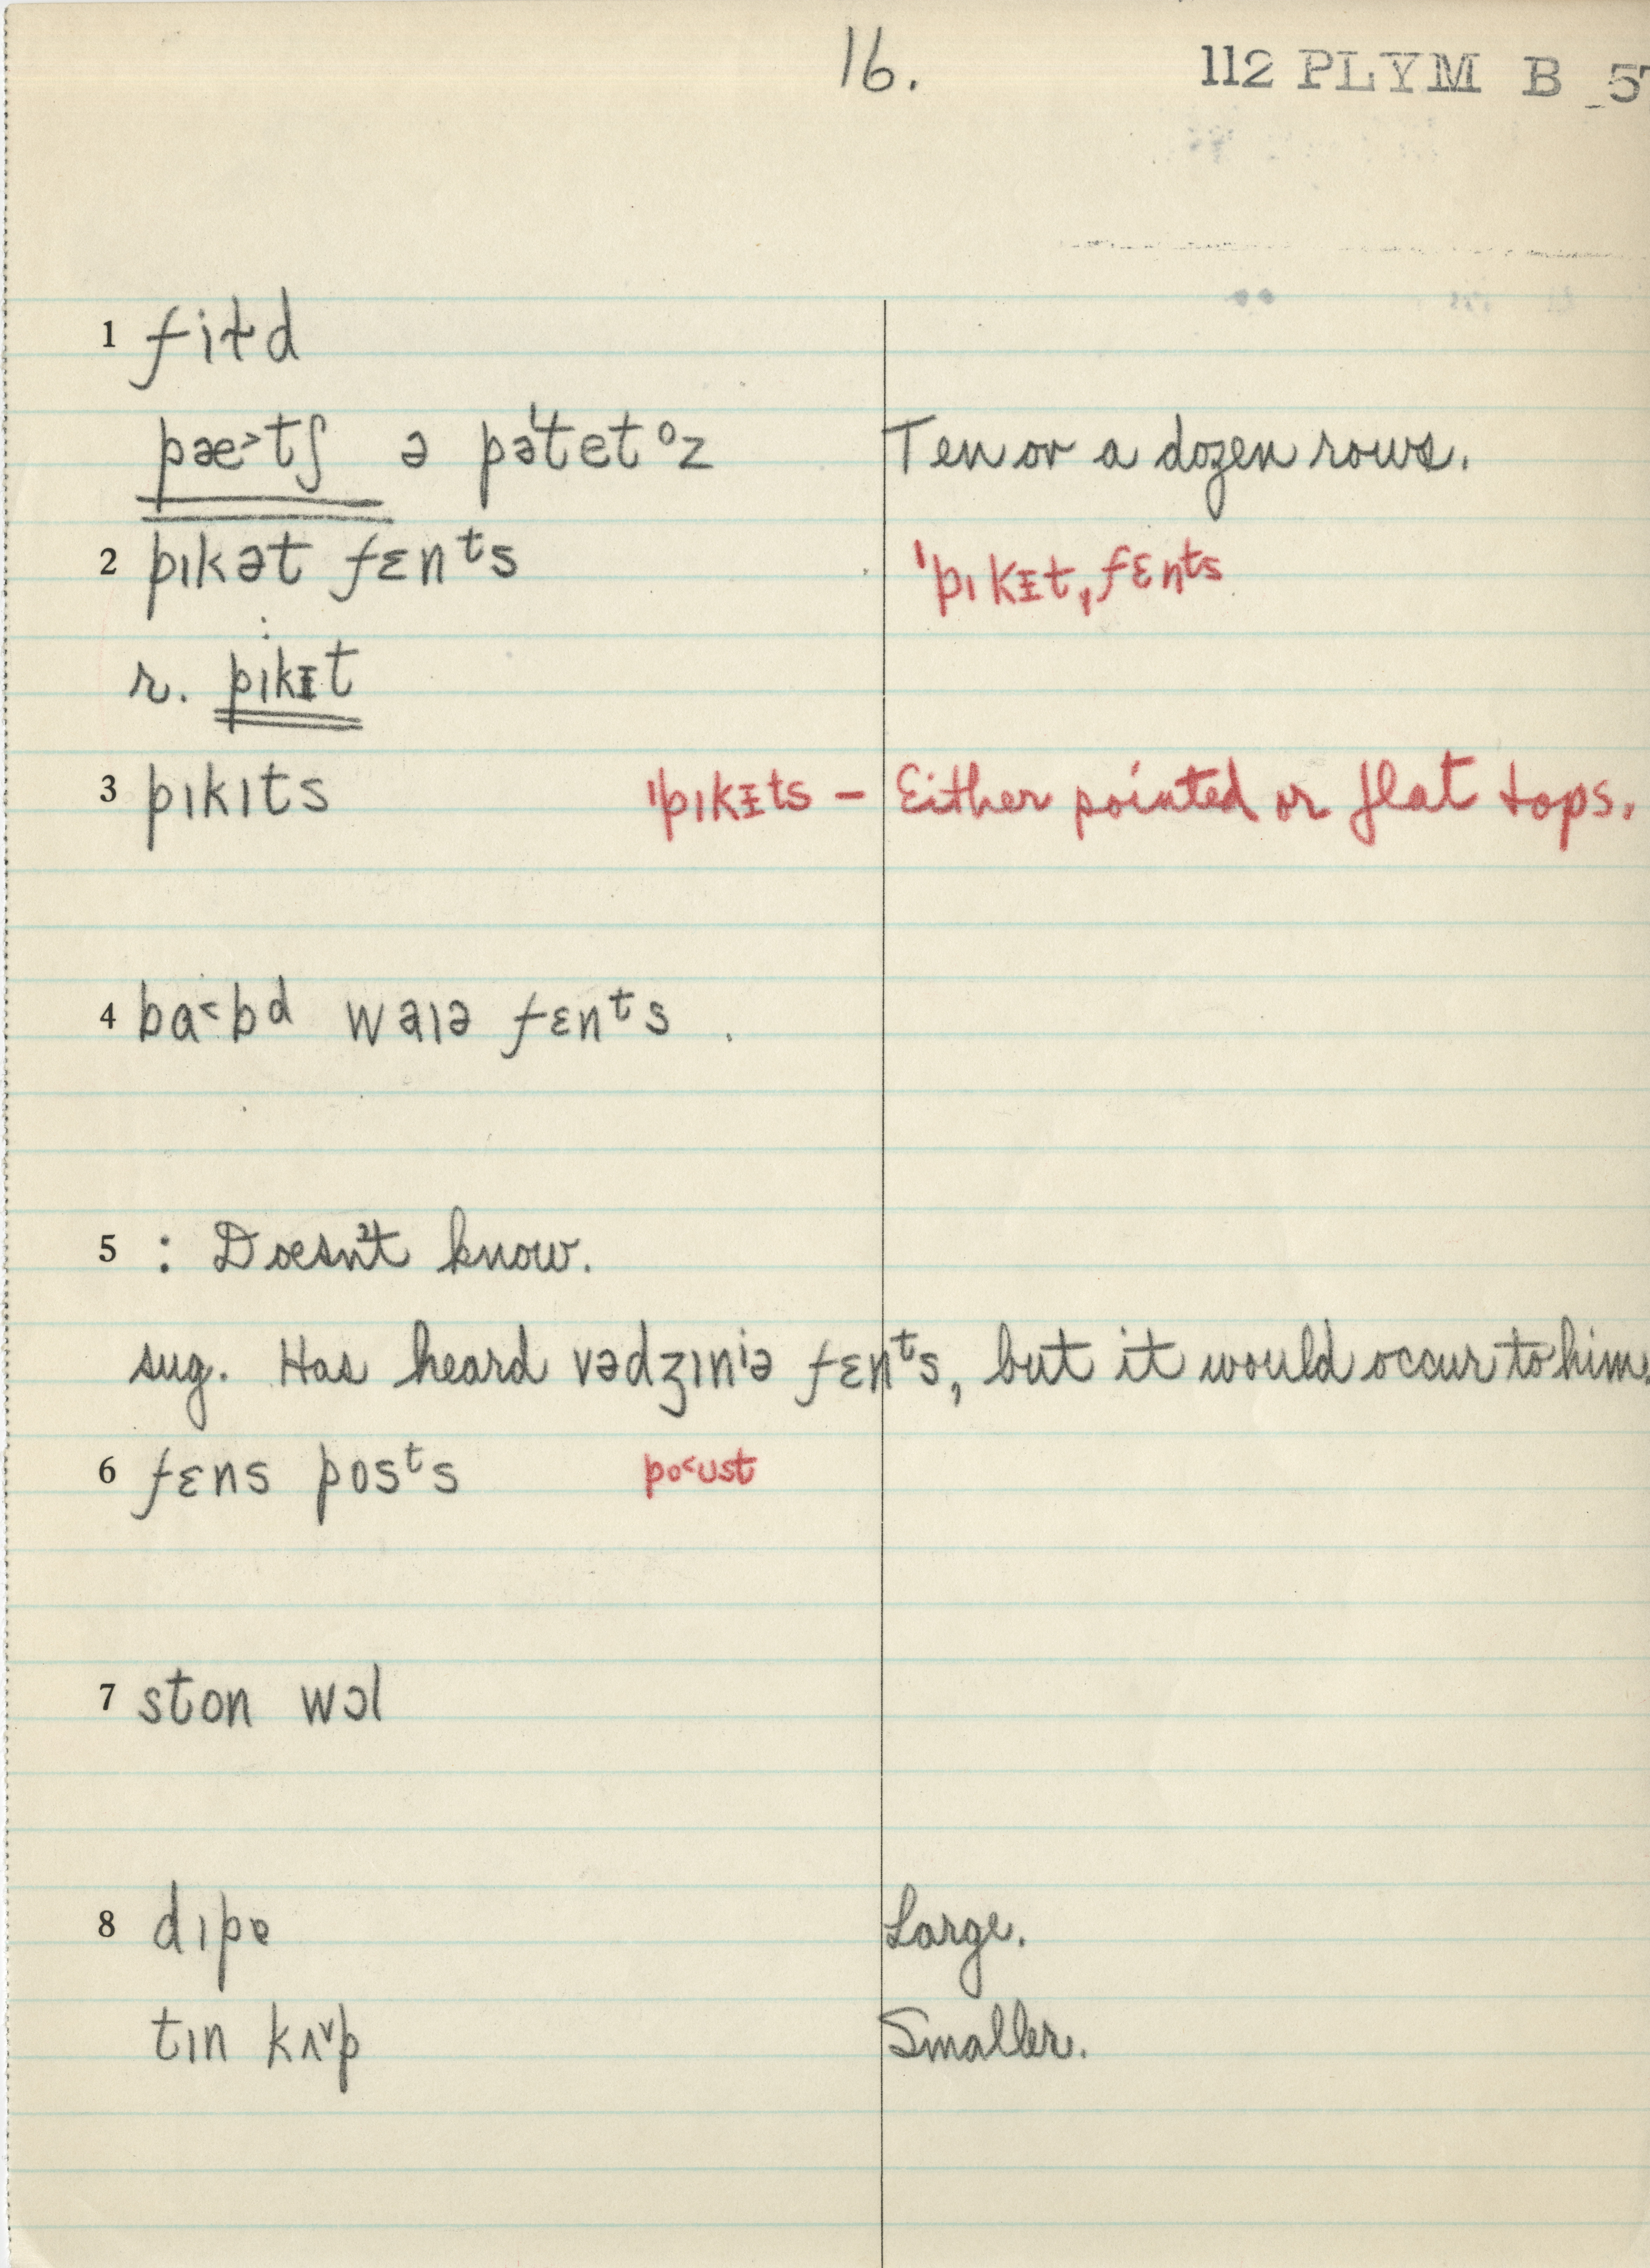 16.
112 PLYM B 5
1 fiɫd
pæ˃tʃ ə pə'tetᵒz Ten or a dozen rows.
2 pıkət fɛnᵗs 'pıkɪt ˌfɛnᵗs
r. pıkɪt
3 pıkıts 'pıkɪts – Either pointed or flat tops.
4 bɑ˂bd wəıə fɛnᵗs
5 : Doesn't know.
sug. Has heard vədʒınⁱə fɛnᵗs, but it would occur to him.
6 fɛns posᵗs po˂ust
7 ston wɔl
8 dıpə Large.
tın kʌ˅p Smaller.